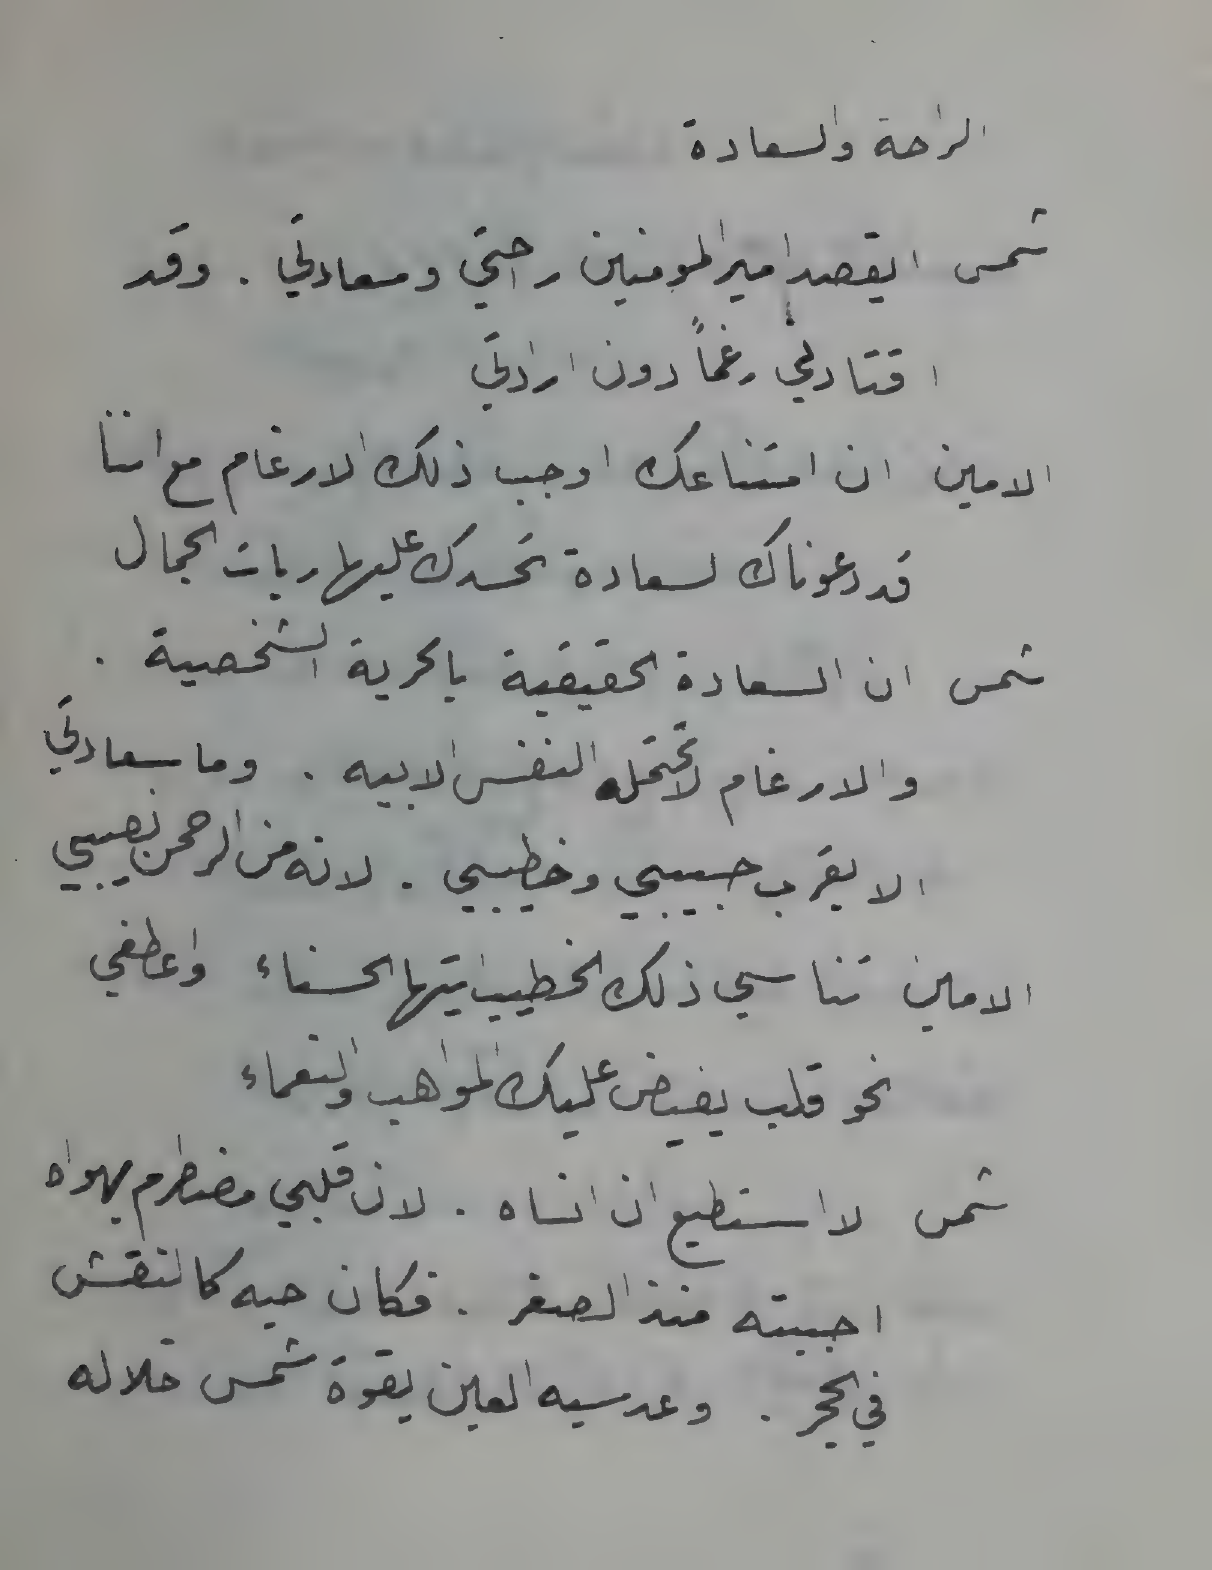 الراحة والسعادة
شمس ايقصد امير المومنين راحتي وسعادتي . وقد
اقتادني رغماً دون ارادتي
الامين ان امتناعك اوجب ذلك الارغام مع اننا
قد دعوناك لسعادة تحسدك عليها ربات الجمال
شمس ان السعادة الحقيقية بالحرية الشخصية .
والارغام لا تحتمله النفس الابيه . وما سعادتي
الا بقرب حبيبي وخطيبي . لانه من الرحمن نصيبي
الامين تناسي ذلك الخطيب ايتها الحسناء واعطفي
نحو قلب يفيض عليك المواهب والنعماء
شمس لا استطيع ان انساه . لان قلبي مضطرم بهواه
احببته منذ الصغر . فكان حبه كالنقش
في الحجر . وعدسيه العين بقوة شمس